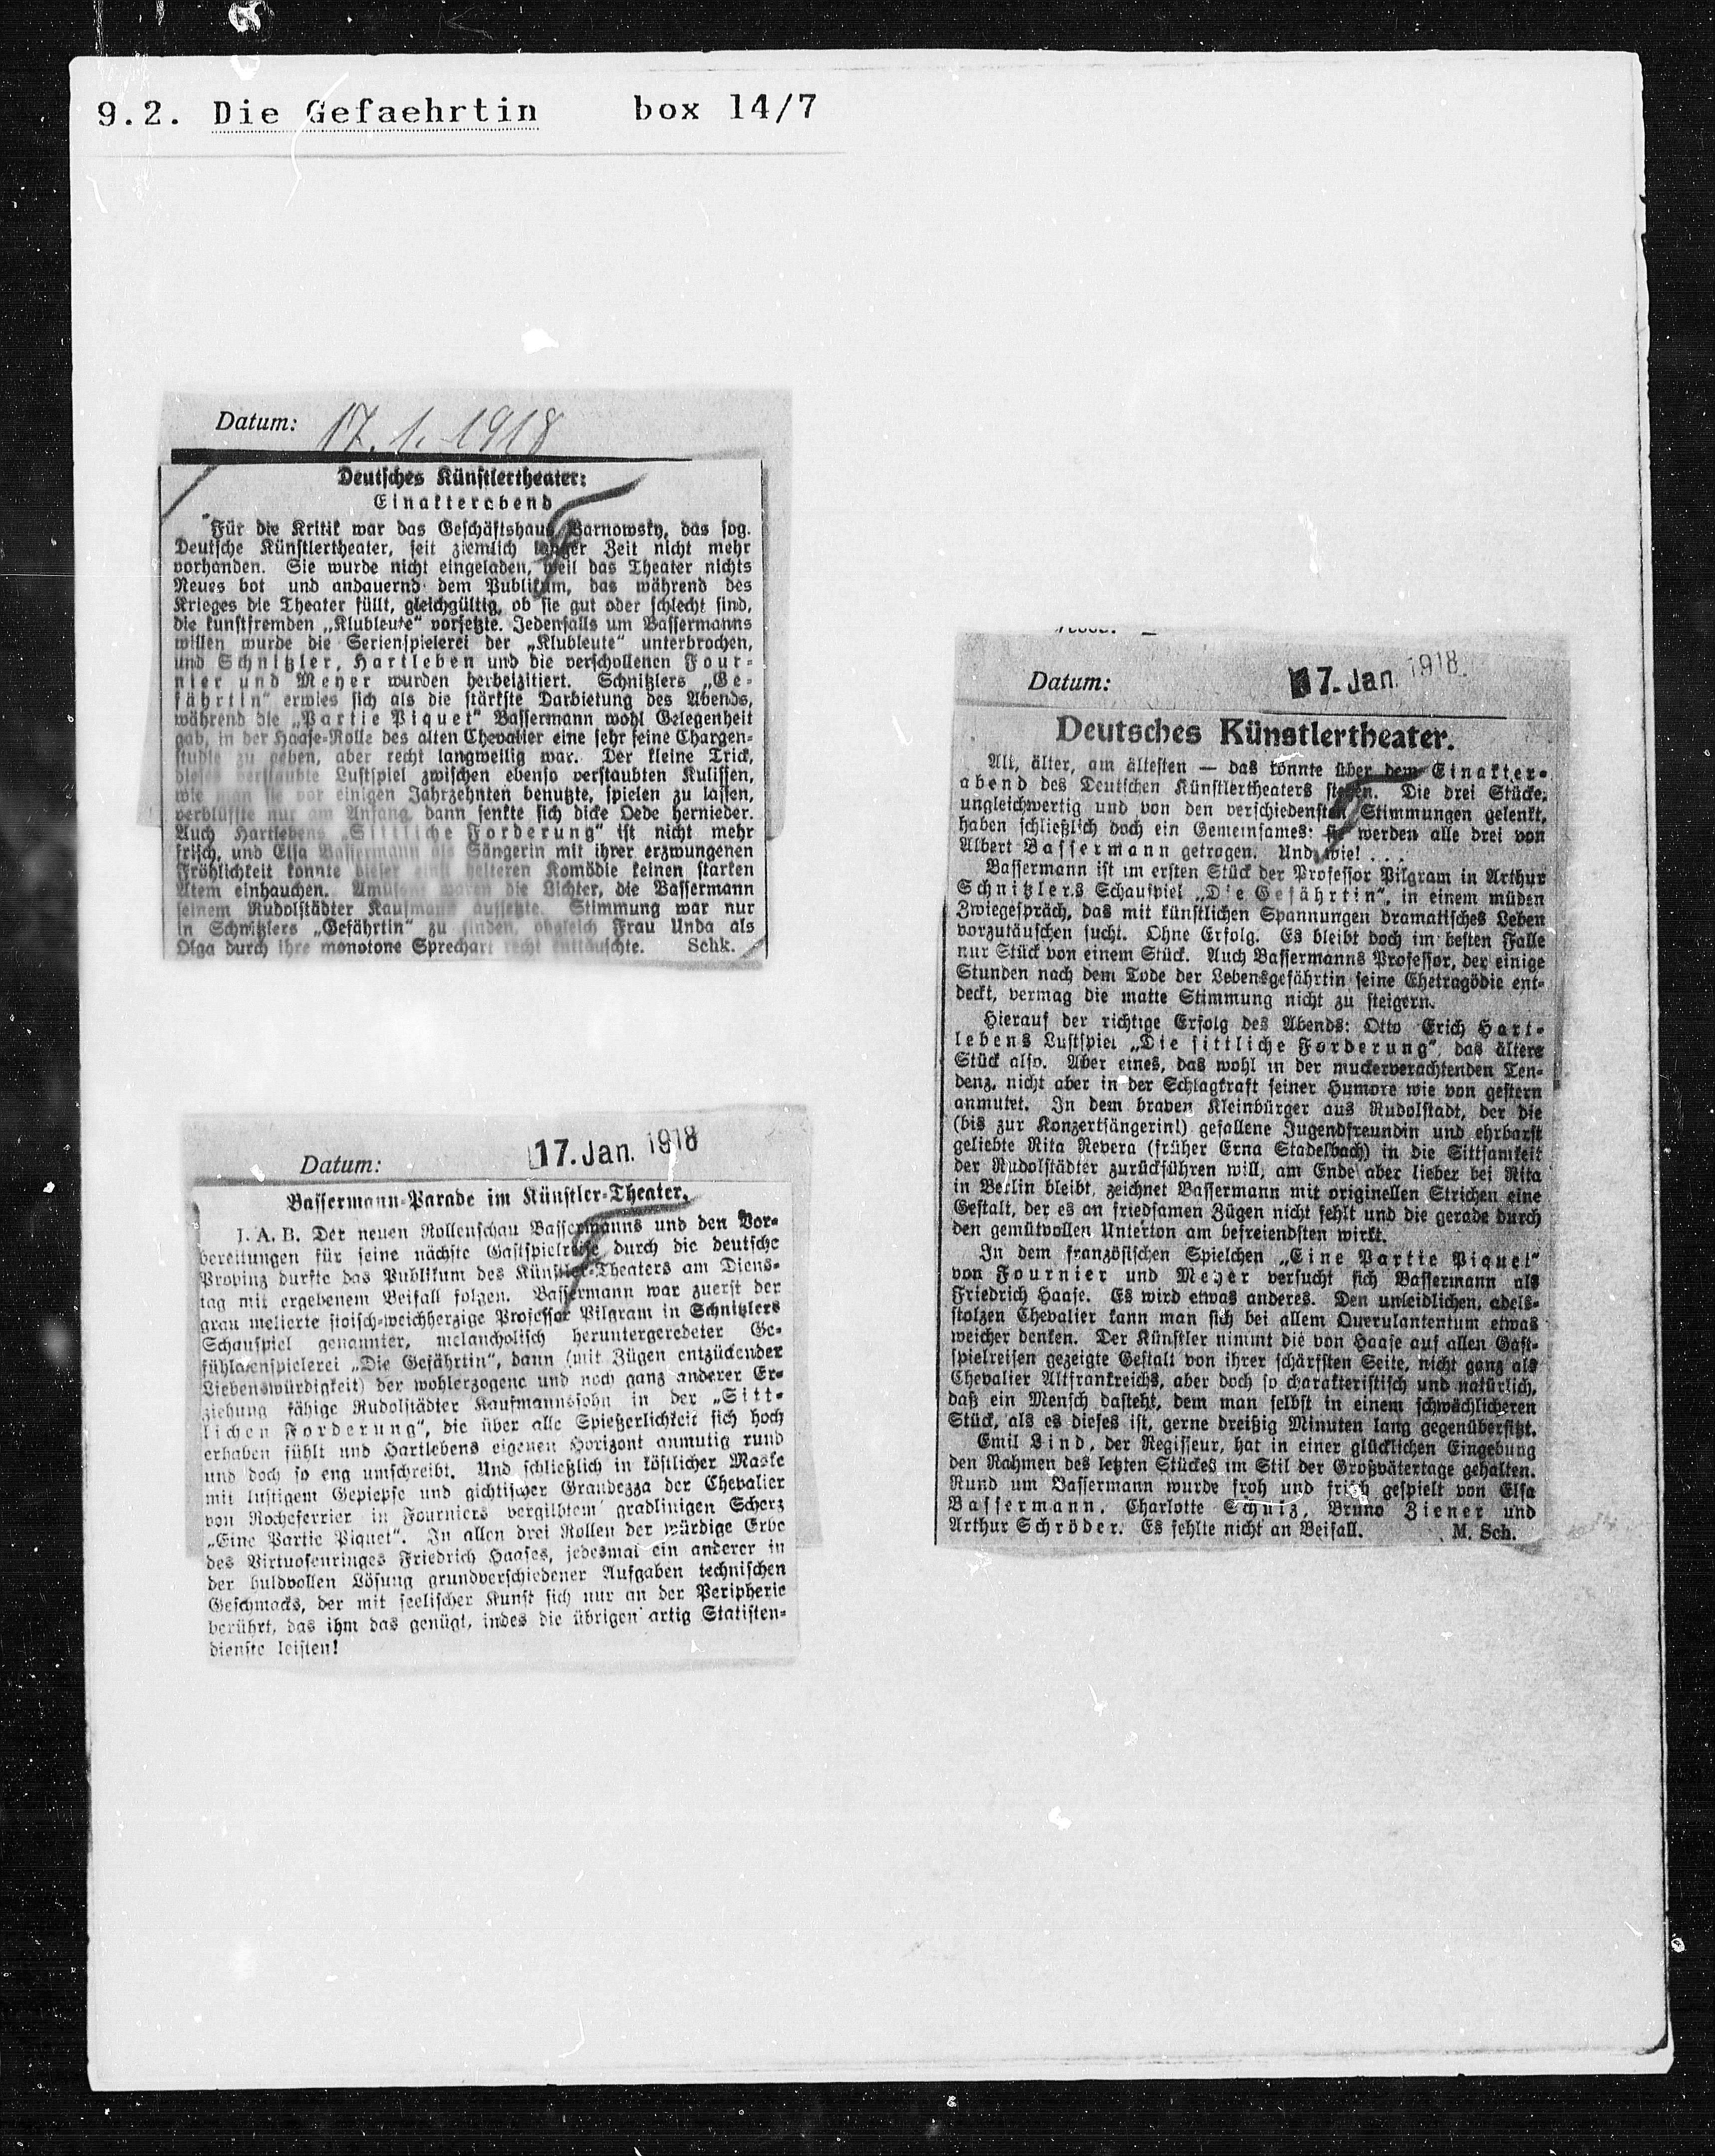 9.2. Die Gefaehrtin box 14/7
Datum: 17. 1. 1918
Deutsches Künstlertheater:
Einakterabend
Für die Kritik war das Geschäftshaus Barnowsky, das sog.
Deutsche Künstlertheater, seit ziemlich langer Zeit nicht mehr
vorhanden. Sie wurde nicht eingeladen, weil das Theater nichts
Neues bot und andauernd dem Publikum, das während des
Krieges die Theater füllt, gleichgültig, ob sie gut oder schlecht sind,
die kunstfremden „Klubleute“ vorsetzte. Jedenfalls um Bassermanns
willen wurde die Serienspielerei der „Klubleute“ unterbrochen,
und Schnitzler, Hartleben und die verschollenen Four-
nier und Meyer wurden herbeizitiert. Schnitzlers „Ge-
fährtin“ erwies sich als die stärkste Darbietung des Abends,
während die „Partie Piquet“ Bassermann wohl Gelegenheit
gab, in der Haase-Rolle des alten Chevalier eine sehr feine Chargen-
studie zu geben, aber recht langweilig war. Der kleine Trick,
dieses verstaubte Lustspiel zwischen ebenso verstaubten Kulissen,
wie man sie vor einigen Jahrzehnten benutzte, spielen zu lassen,
verblüffte nur am Anfang, dann senkte sich dicke Oede hernieder.
Auch Hartlebens „Sittliche Forderung“ ist nicht mehr
frisch, und Elsa Bassermann als Sängerin mit ihrer erzwungenen
Fröhlichkeit konnte dieser einst heiteren Komödie keinen starken
Atem einhauchen. Amüsant waren die Lichter, die Bassermann
seinem Rudolstädter Kaufmann aufsetzte. Stimmung war nur
in Schnitzlers „Gefährtin“ zu finden, obgleich Frau Unda als
Olga durch ihre monotone Sprechart recht enttäuschte. Schk.
Datum: 17. Jan. 1918
Bassermann-Parade im Künstler-Theater.
I. A. B. Der neuen Rollenschau Bassermanns und den Vor-
bereitungen für seine nächste Gastspielreise durch die deutsche
Provinz durfte das Publikum des Künstler-Theaters am Diens-
tag mit ergebenem Beifall folgen. Bassermann war zuerst der
grau melierte stoisch-weichherzige Professor Pilgram in Schnitzlers
Schauspiel genannter, melancholisch heruntergeredeter Ge-
fühlchenspielerei „Die Gefährtin“, dann (mit Zügen entzückender
Liebenswürdigkeit) der wohlerzogene und noch ganz anderer Er-
ziehung fähige Rudolstädter Kaufmannssohn in der „Sitt-
lichen Forderung“, die über alle Spießerlichkeit sich hoch
erhaben fühlt und Hartlebens eigenen Horizont anmutig rund
und doch so eng umschreibt. Und schließlich in köstlicher Maske
mit lustigem Gepiepse und gichtischer Grandezza der Chevalier
von Rocheferrier in Fourniers vergilbtem gradlinigen Scherz
„Eine Partie Piquet“. In allen drei Rollen der würdige Erbe
des Virtuosenringes Friedrich Haases, jedesmal ein anderer in
der huldvollen Lösung grundverschiedener Aufgaben technischen
Geschmacks, der mit seelischer Kunst sich nur an der Peripherie
berührt, das ihm das genügt, indes die übrigen artig Statisten-
dienste leisten!
Datum: 17. Jan. 1918.
Deutsches Künstlertheater.
Alt, älter, am ältesten — das könnte über dem Einakter-
abend des Deutschen Künstlertheaters stehen. Die drei Stücke,
ungleichwertig und von den verschiedensten Stimmungen gelenkt,
haben schließlich doch ein Gemeinsames: sie werden alle drei von
Albert Bassermann getragen. Und wie! . . .
Bassermann ist im ersten Stück der Professor Pilgram in Arthur
Schnitzlers Schauspiel „Die Gefährtin“, in einem müden
Zwiegespräch, das mit künstlichen Spannungen dramatisches Leben
vorzutäuschen sucht. Ohne Erfolg. Es bleibt doch im besten Falle
nur Stück von einem Stück. Auch Bassermanns Professor, der einige
Stunden nach dem Tode der Lebensgefährtin seine Ehetragödie ent-
deckt, vermag die matte Stimmung nicht zu steigern.
Hierauf der richtige Erfolg des Abends: Otto Erich Hart-
lebens Lustspiel „Die sittliche Forderung“, das ältere
Stück also. Aber eines, das wohl in der muckerverachtenden Ten-
denz, nicht aber in der Schlagkraft seiner Humore wie von gestern
anmutet. In dem braven Kleinbürger aus Rudolstadt, der die
(bis zur Konzertsängerin!) gefallene Jugendfreundin und ehrbarst
geliebte Rita Revera (früher Erna Stadelbach) in die Sittsamkeit
der Rudolstädter zurückführen will, am Ende aber lieber bei Rita
in Berlin bleibt, zeichnet Bassermann mit originellen Strichen eine
Gestalt, der es an friedsamen Zügen nicht fehlt und die gerade durch
den gemütvollen Unterton am befreiendsten wirkt.
In dem französischen Spielchen „Eine Partie Piquet“
von Fournier und Meyer versucht sich Bassermann als
Friedrich Haase. Es wird etwas anderes. Den unleidlichen, adels-
stolzen Chevalier kann man sich bei allem Querulantentum etwas
weicher denken. Der Künstler nimmt die von Haase auf allen Gast-
spielreisen gezeigte Gestalt von ihrer schärfsten Seite, nicht ganz als
Chevalier Altfrankreichs, aber doch so charakteristisch und natürlich,
daß ein Mensch dasteht, dem man selbst in einem schwächlicheren
Stück, als es dieses ist, gerne dreißig Minuten lang gegenübersitzt.
Emil Lind, der Regisseur, hat in einer glücklichen Eingebung
den Rahmen des letzten Stückes im Stil der Großvätertage gehalten.
Rund um Bassermann wurde froh und frisch gespielt von Elsa
Bassermann, Charlotte Schulz, Bruno Ziener und
Arthur Schröder. Es fehlte nicht an Beifall. M. Sch.